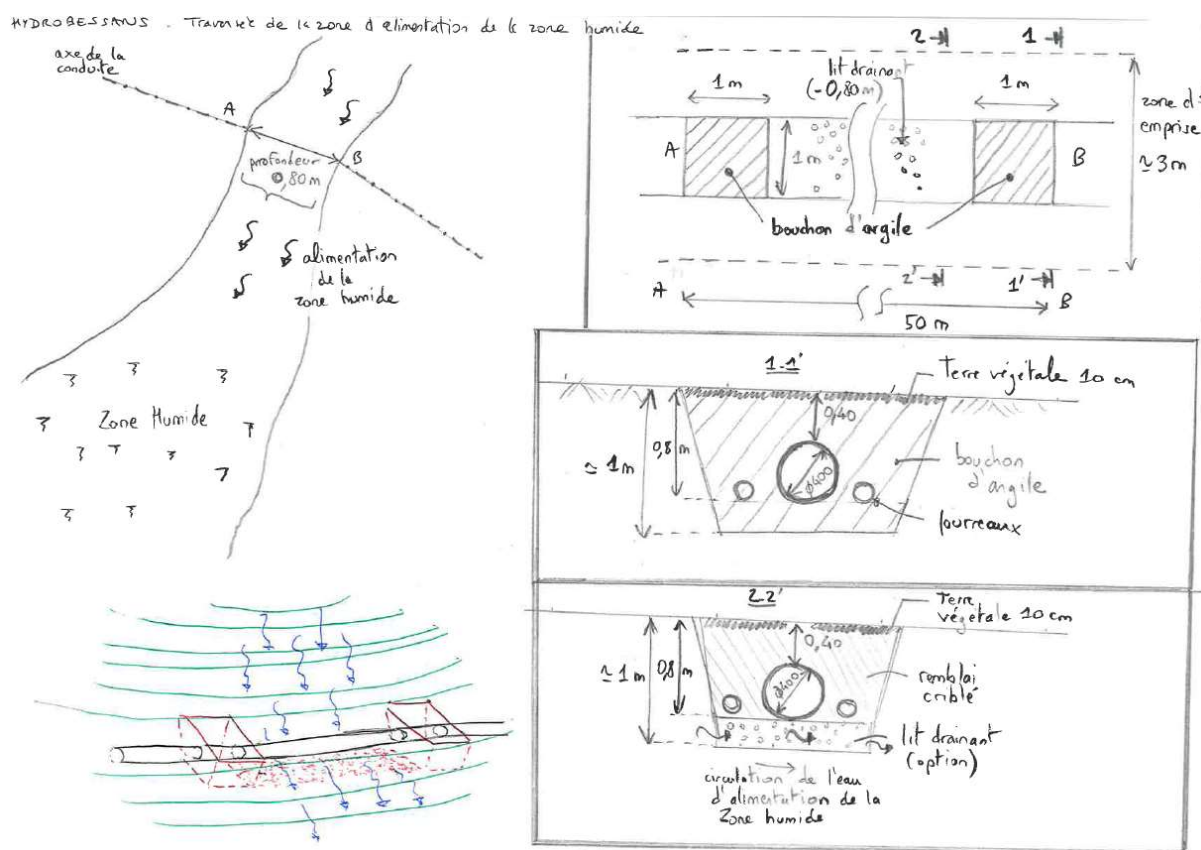 HYDROBESSANS - Traversée de la zone d'alimentation de la zone humide
axe de la
conduite
A
B
profondeur
0,80m
alimentation
de la
zone humide
Zone Humide
2
1
lit drainant
(-0,80m)
1m
1m
A
1m
B
zone d'
emprise
≃3m
bouchon d'argile
2'
1'
A
B
50 m
1.1'
Terre végétale 10 cm
0,40
0,8 m
≃ 1m
φ400
bouchon
d'argile
fourreaux
2.2'
Terre
végétale 10 cm
0,40
≃ 1m
0,8 m
φ400
remblai
criblé
lit drainant
(option)
circulation de l'eau
d'alimentation de la
Zone humide